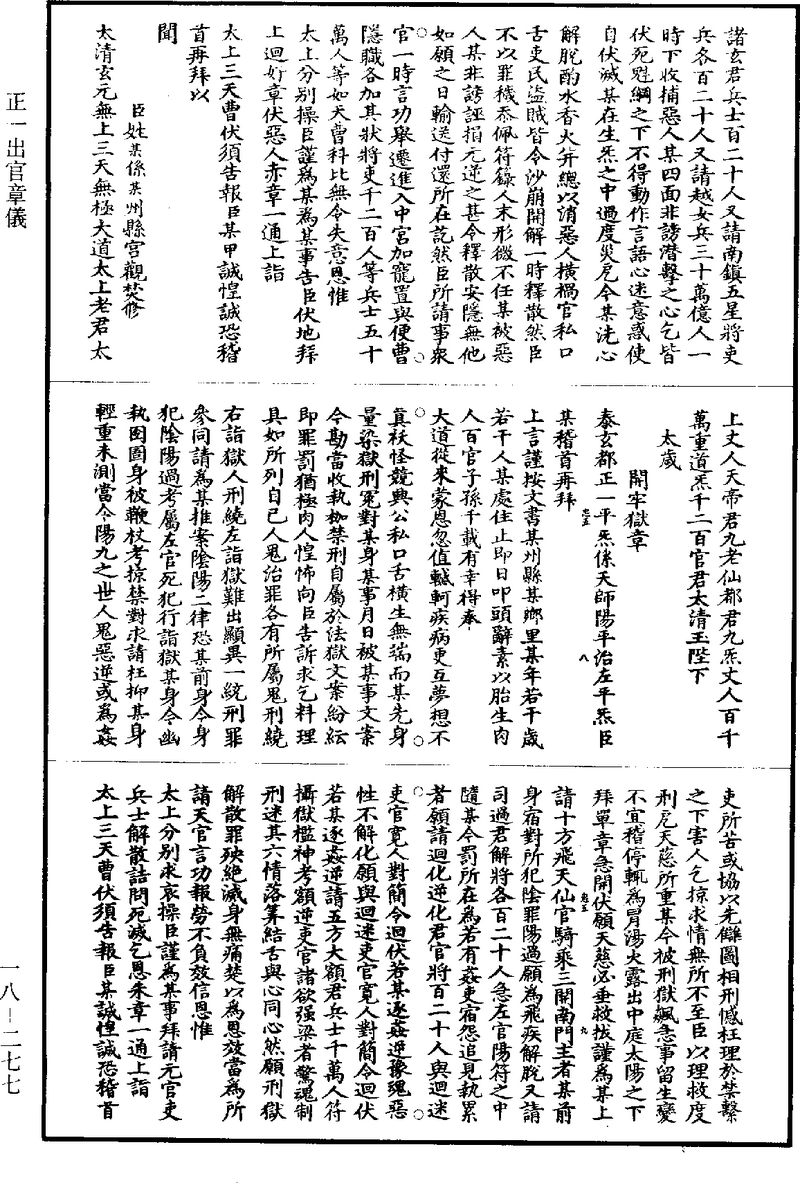 諸玄君兵士百二十人又請南鎮五星將吏
兵各百二十人又請越女兵三十萬億人一
時下收捕惡人某四面非謗潛擊之心乞皆
伏死魁綱之下不得動作言語心迷意惑使
自伏滅某在生炁之中過度災厄令某洗心
解脫酌水香火并總以消惡人橫禍官私口
舌吏民盜賊皆令沙崩開解一時釋散然臣
不以罪穢忝佩符籙人末形微不任某被惡
人某非謗誣揖元逆之甚令釋散安隱無他
如願之日輸送付還所在訖然臣所請事衆
官一時言功舉遷進入中宮加寵置與便曹
隱職各加其狀將吏千二百人等兵士五十
萬人等如天曹科比無令失意恩惟
太上分別操臣謹為某為某事告臣伏地拜
上迴好章伏惡人赤章一通上詣
太上三天曹伏須告報臣某甲誠惶誠恐稽
首再拜以
聞
臣姓某係某州縣宮觀焚修
太清玄元無上三天無極大道太上老君太
上丈人天帝君九老仙都君九炁丈人百千
萬重道炁千二百官君太清玉陛下
太歲
開牢獄章
泰玄都正一平炁係天師陽平治左平炁臣
某稽首再拜
上言謹按文書某州縣某鄉里某年若干歲
若干人某處住止即日叩頭辭素以胎生肉
人百官子孫千載有幸得奉
大道從來蒙恩忽值轗軻疾病更互夢想不
真袄怪競興公私口舌橫生無端而某先身
量染獄刑冤對某身某事月日被某事文案
令勘當收執枷禁刑自屬於法獄文案紛紜
即罪罰猶極肉人惶怖向臣告訴求乞料理
具如所列自己人鬼治罪各有所屬鬼刑繞
右詣獄人刑繞左詣獄難出顯異一統刑罪
參同請為某推案陰陽二律恐某前身今身
犯陰陽過考屬左官死犯行詣獄某身今幽
執囹圄身被鞭杖考掠禁對求請枉抑某身
輕重未測當今陽九之世人鬼惡逆或為姦
吏所苦或協以先讎圖相刑憾枉理於禁繫
之下害人乞掠求情無所不至臣以理救度
刑厄天慈所重某今被刑獄飆急事留生變
不宜稽停輒為冒湯火露出中庭太陽之下
拜單章急開伏願天慈必垂救拔謹為某上
請十方飛天仙官騎乘三開南門主者某前
身宿對所犯陰罪陽過願為飛疾解脫又請
司過君解將各百二十人急左官陽符之中
隨某今罰所在為若有姦吏宿怨追見執累
者願請迴化逆化君官將百二十人與迴迷
吏官寬人對簡令迴伏若某逐姦逆豫塊惡
性不解化願與迴迷吏官寬人對簡令迴伏
若某逐姦逆請五方大額君兵士千萬人符
攝獄檻神考額逆吏官諸欲強梁者驚魂制
刑迷其六情落筭結舌與心同心然願刑獄
解散罪殃絕滅身無痛楚以為恩效當為所
請天官言功報勞不負效信恩惟
太上分別求哀操臣謹為某事拜請元官吏
兵士解散詰問死滅乞恩朱章一通上詣
太上三天曹伏須告報臣某誠惶誠恐稽首
正一出官章儀
一八-二七七